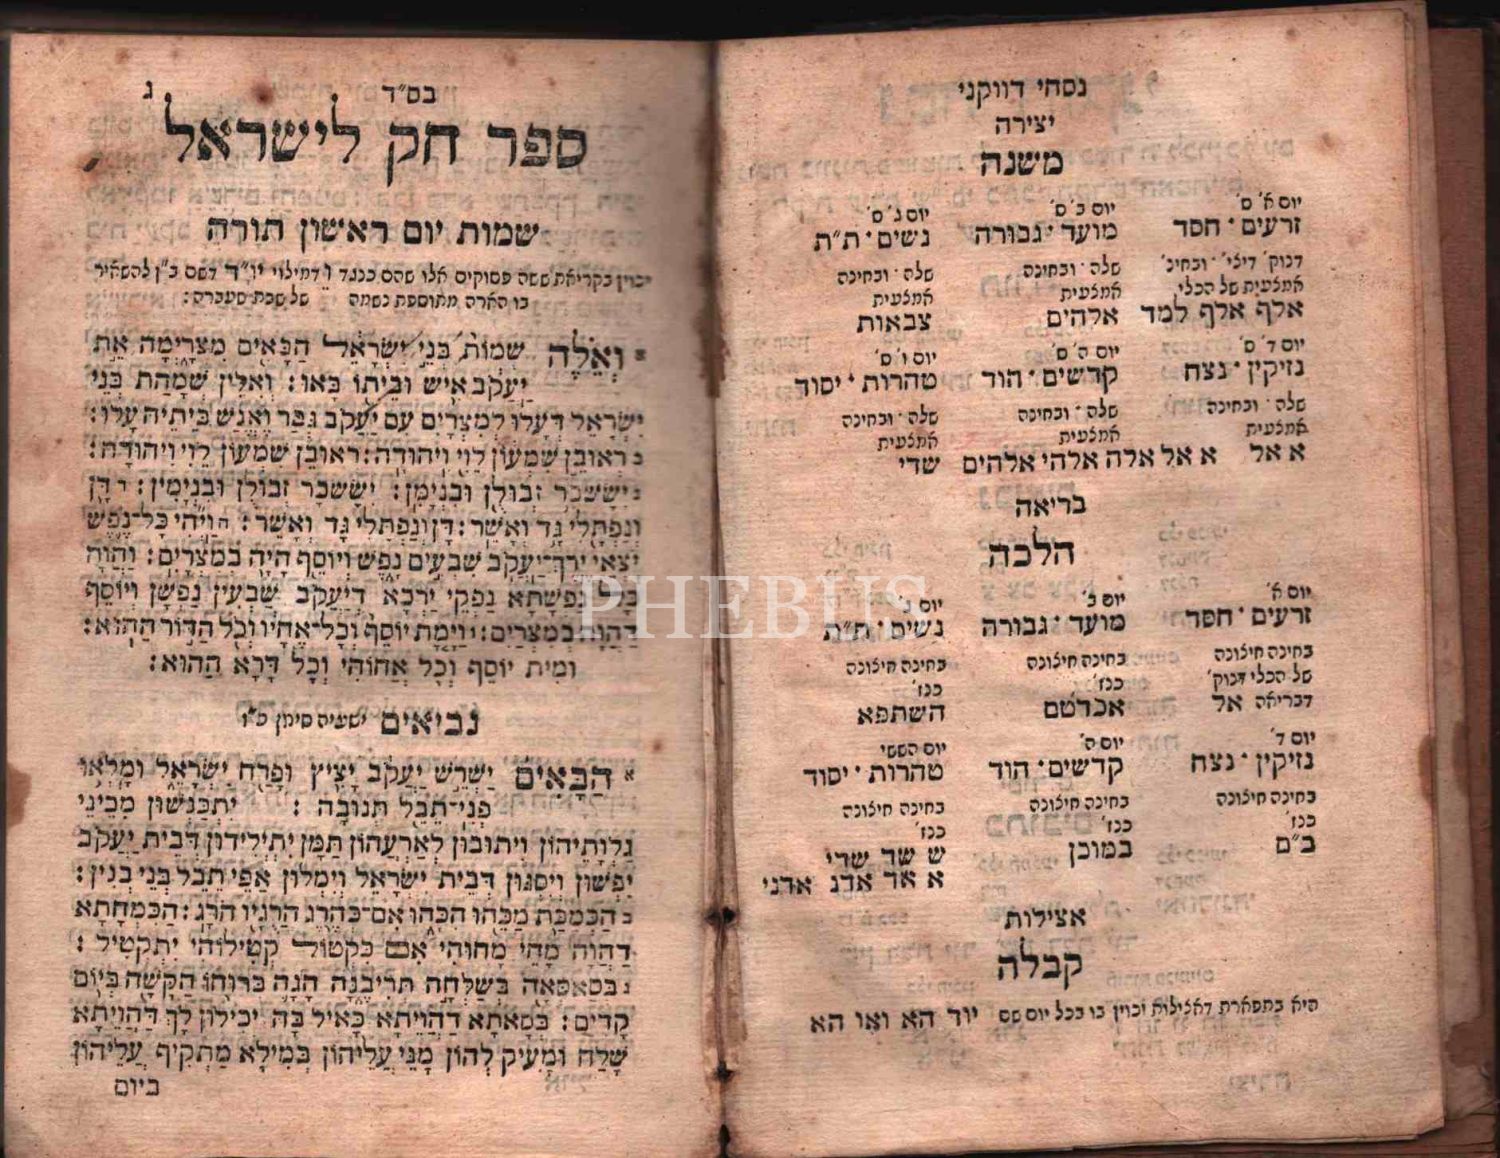 נסחי דווקני
יצירה
משנה
יום א׳ ס׳ יום ב׳ ס׳ יום ג׳ ס׳
זרעים · חסד מועד · גבורה נשים · ת״ת
דנוק׳ דיצי׳ · ובחינ׳ שלה · ובחינה שלה · ובחינה
אמצעית של הכלי אמצעית אמצעית
אלף אלף למד אלהים צבאות
יום ד׳ ס׳ יום ה׳ ס׳ יום ו׳ ס׳
נזיקין · נצח קדשים · הוד טהרות · יסוד
שלה · ובחינה שלה · ובחינה שלה · ובחינה
אמצעית אמצעית אמצעית
א אל א אל אלה אלהי אלהים שדי
בריאה
הלכה
יום א׳ יום ב׳ יום ג׳
זרעים · חסד מועד · גבורה נשים · ת״ת
בחינה חיצונה בחינה חיצונה בחינה חיצונה
של הכלי דנוק׳ כנז׳ כנז׳
דבריאה אל אכדטם השתפא
יום ד׳ יום ה׳ יום הששי
נזיקין · נצח קדשים · הוד טהרות · יסוד
בחינה חיצונה בחינה חיצונה בחינה חיצונה
כנז׳ כנז׳ כנז׳
ב״ם במוכן ש שד שדי
א אד אדנ אדני
אצילות
קבלה
היא בתפארת דאצילות ויכוין בו בכל יום שם יוד הא ואו הא
בס״ד
ג
ספר חק לישראל
שמות יום ראשון תורה
יכוין בקריאת ששה פסוקים אלו שהם כנגד ו דמילוי יו״ד דשם ב״ן להשאיר
בו הארה מתוספת נשמה של שבת שעברה:
א וְאֵלֶּה שְׁמוֹת בְּנֵי יִשְׂרָאֵל הַבָּאִים מִצְרָיְמָה אֵת
יַעֲקֹב אִישׁ וּבֵיתוֹ בָּאוּ: וְאִלֵּין שְׁמָהַת בְּנֵי
יִשְׂרָאֵל דְּעָלוּ לְמִצְרַיִם עִם יַעֲקֹב גְּבַר וֶאֱנַשׁ בֵּיתֵיהּ עָלוּ:
ב רְאוּבֵן שִׁמְעוֹן לֵוִי וִיהוּדָה: רְאוּבֵן שִׁמְעוֹן לֵוִי וִיהוּדָה:
ג יִשָּׂשכָר זְבוּלֻן וּבִנְיָמִן: יִשָּׂשכָר זְבוּלֻן וּבִנְיָמִין: ד דָּן
וְנַפְתָּלִי גָּד וְאָשֵׁר: דָּן וְנַפְתָּלִי גָּד וְאָשֵׁר: ה וַיְהִי כָּל־נֶפֶשׁ
יֹצְאֵי יֶרֶךְ־יַעֲקֹב שִׁבְעִים נָפֶשׁ וְיוֹסֵף הָיָה בְמִצְרָיִם: וַהֲוָה
כָּל נַפְשָׁתָא נָפְקֵי יַרְכָּא דְיַעֲקֹב שַׁבְעִין נַפְשָׁן וְיוֹסֵף
דַּהֲוָה בְּמִצְרָיִם: ו וַיָּמָת יוֹסֵף וְכָל־אֶחָיו וְכֹל הַדּוֹר הַהוּא:
וּמִית יוֹסֵף וְכָל אֲחוֹהִי וְכָל דָּרָא הַהוּא:
נביאים ישעיה סימן כ״ז
א הַבָּאִים יַשְׁרֵשׁ יַעֲקֹב יָצִיץ וּפָרַח יִשְׂרָאֵל וּמָלְאוּ
פְנֵי־תֵבֵל תְּנוּבָה: יִתְכַּנְשׁוּן מִבֵּינֵי
גַלְוָתֵיהוֹן וִיתוּבוּן לְאַרְעֲהוֹן תַּמָּן יִתְיַלְּידוּן דְּבֵית יַעֲקֹב
יִפְשׁוּן וְיִסְגּוּן דְּבֵית יִשְׂרָאֵל וְיִמְלוּן אַפֵּי תֵבֵל בְּנֵי בְנִין:
ב הַכְּמַכַּת מַכֵּהוּ הִכָּהוּ אִם־כְּהֶרֶג הֲרֻגָיו הֹרָג: הַכִּמְחָתָא
דַּהֲוָה מָחֵי מָחוּהִי אִם כִּקְטוֹל קְטִילוֹהִי יִתְקְטִיל:
ג בְּסַאסְּאָה בְּשַׁלְחָהּ תְּרִיבֶנָּה הָגָה בְּרוּחוֹ הַקָּשָׁה בְּיוֹם
קָדִים: בְּסָאתָא דַהֲוֵיתָא כָּאֵיל בָּהּ יְכִילוּן לָךְ דַּהֲוֵיתָא
שָׁלַח וּמְעִיק לְהוֹן מָנֵי עֲלֵיהוֹן בְּמִילָא מַתְקִיף עֲלֵיהוֹן
ביום
PHEBUS